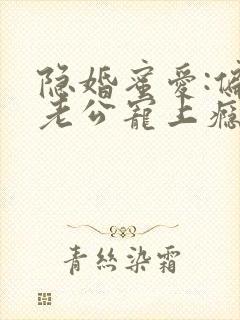 隐婚蜜爱:偏
老公宠上瘾
青丝染霜